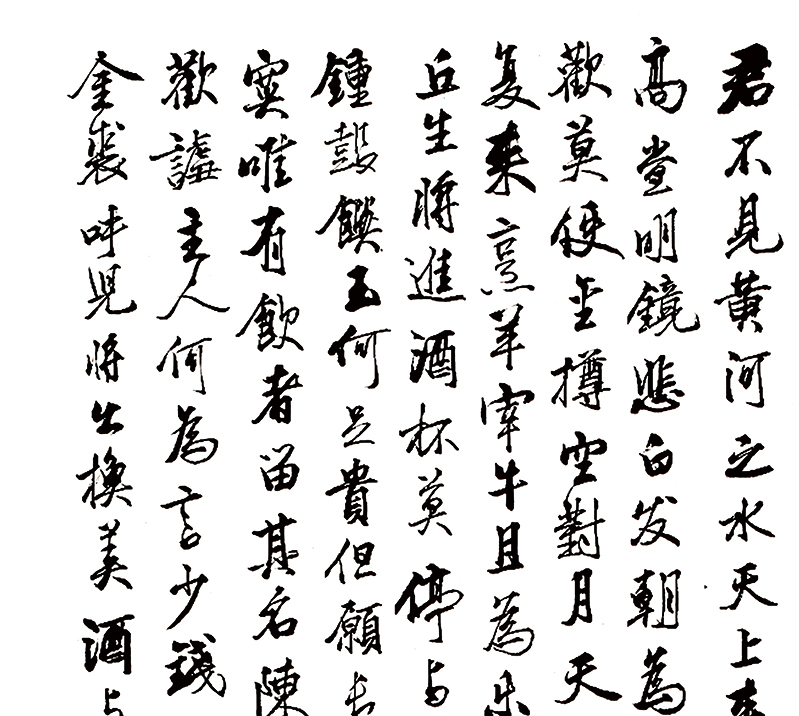 君不見黃河之水天上来
高堂明鏡悲白发朝為
歡莫使金樽空對月天
复来烹羊宰牛且為乐
丘生將進酒杯莫停与
鍾鼓饌玉何足貴但願长
寞唯有飲者留其名陳
歡謔主人何為言少錢
金裘呼児將出換美酒与